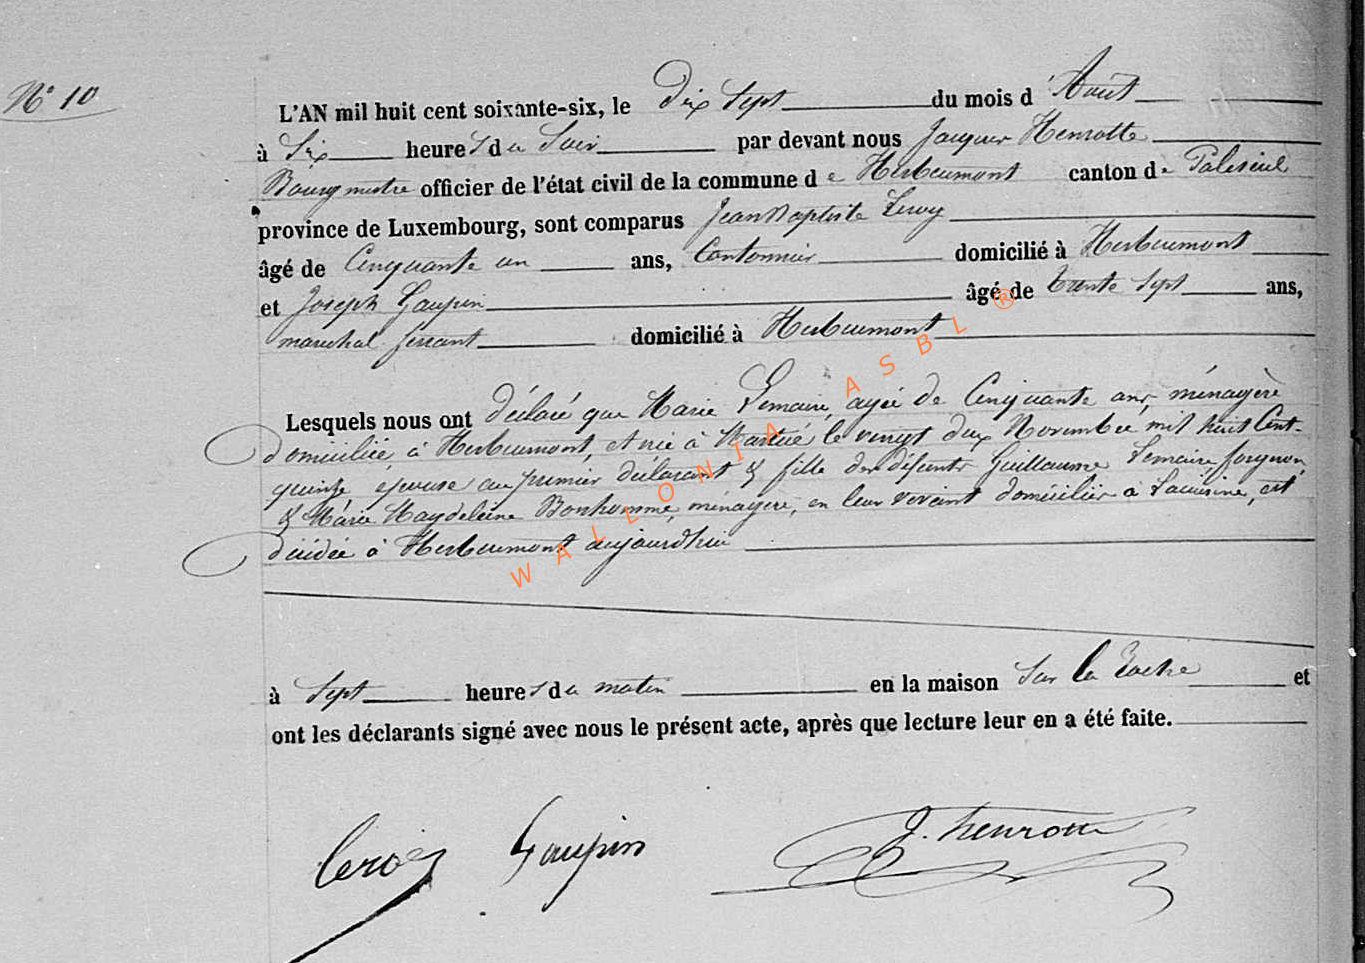 N° 10
L'AN mil huit cent soixante-six, le Dix Sept du mois d'Aout
à Six heures du Soir par devant nous Jacques Henrotte
Bourgmestre officier de l'état civil de la commune de Herbeumont canton de Paliseul
province de Luxembourg, sont comparus Jean Baptiste Leroy
âgé de Cinquante un ans, Cantonnier domicilié à Herbeumont
et Joseph Gaupin âgé de trente Sept ans,
marechal ferrant domicilié à Herbeumont
Lesquels nous ont déclaré que Marie Lemaire, agée de Cinquante ans, ménagère
domiciliée à Herbeumont, et née à Martué le vingt deux Novembre mil huit Cent-
quinze, épouse au premier déclarant & fille des défunts Guillaume Lemaire, forgeron,
& Marie Magdeleine Bonhomme, ménagère, en leur vivant domiciliés à Lacuisine, est
décédée à Herbeumont aujourd'hui
à Sept heures du matin en la maison Sur la Roche et
ont les déclarants signé avec nous le présent acte, après que lecture leur en a été faite.
Leroy Gaupin J. henrotte
WALLONIA ASBL ®